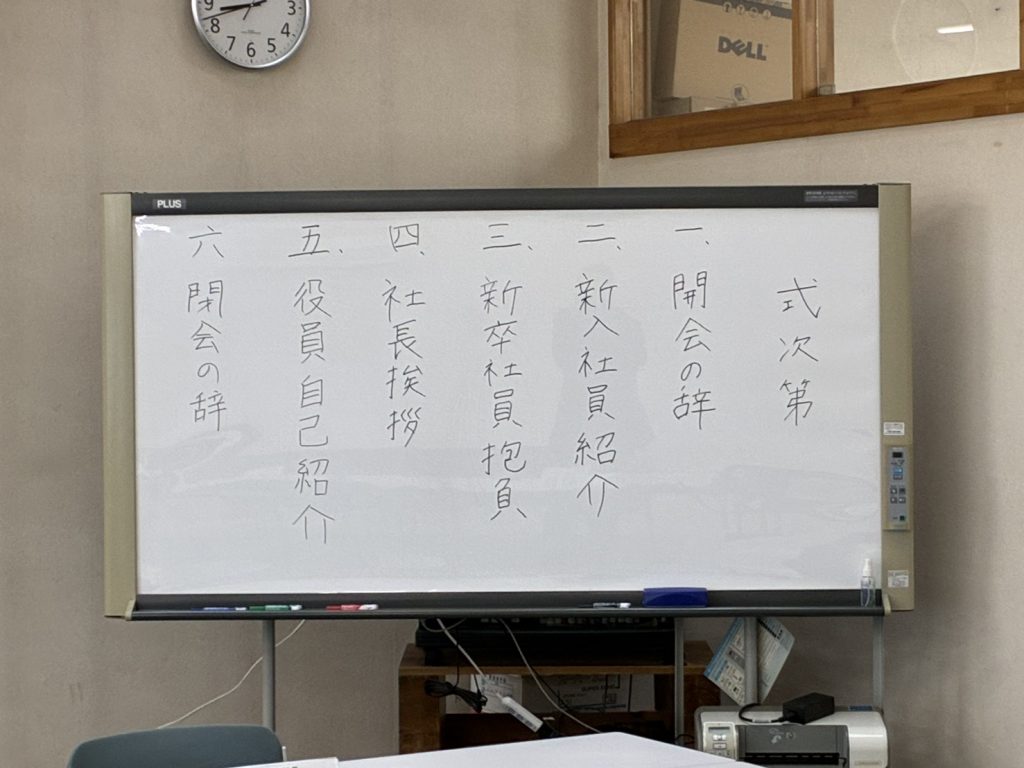 式次第
一、開会の辞
二、新入社員紹介
三、新卒社員抱負
四、社長挨拶
五、役員自己紹介
六 閉会の辞
PLUS
DELL
9
8
7
6
5
4
3